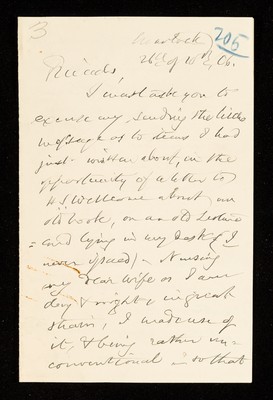 3
Matlock
205
26th of 10th, 06.
Friends,
I must ask you to
excuse my sending the little
message as to items I had
just written about, in the
opportunity of a letter to
H S Wellcome about an
old book, on an old
card lying in my desk (I
never
Nursing
my dear wife as I am
day & night & in great
strain, I made use of
it, & being rather un-
conventional = so that